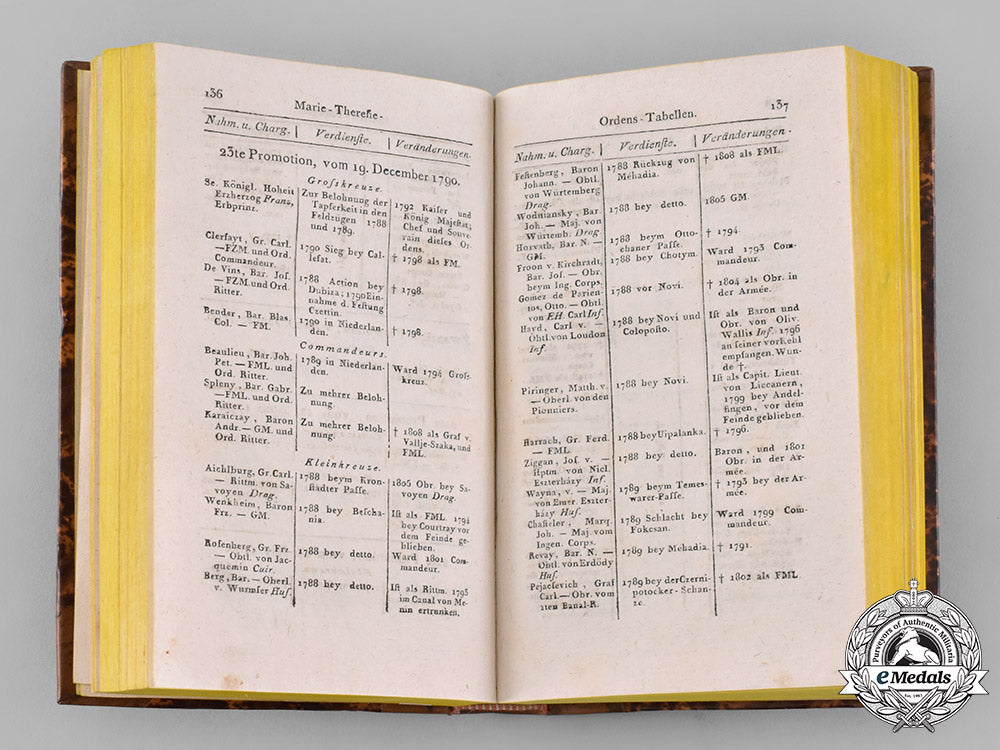 136
Marie-Therefie-
Nahm. u. Charg. Verdienfte. Veränderungen.
23te Promotion, vom 19. December 1790.
Grofskreuze.
Se. Königl. Hoheit
Erzherzog Franz,
Erbprinz.
Zur Belohnung der
Tapferkeit in den
Feldzügen 1788
und 1789.
1792 Kaifer und
König Majeftat;
Chef und Souve-
rain diefes Or-
dens.
Clerfayt, Gr. Carl.
—FZM. und Ord.
Commandeur.
1790 Sieg bey Cal-
lefat.
† 1798 als FM.
De Vins, Bar. Jof.
—FZM. und Ord.
Ritter.
1788 Action bey
Dubiza; 1790 Ein-
nahme d. Feftung
Czettin.
† 1798.
Bender, Bar. Blas.
Col. — FM.
1790 in Niederlan-
den.
† 1798.
Commandeurs.
Beaulieu, Bar. Joh.
Pet. — FML. und
Ord. Ritter.
1789 in Niederlan-
den.
Ward 1794 Grofs-
kreuz.
Spleny, Bar. Gabr.
—FML. und Ord.
Ritter.
Zu mehrer Beloh-
nung.
Karaiczay, Baron
Andr.—GM. und
Ord. Ritter.
Zu mehrer Beloh-
nung.
† 1808 als Graf v.
Vallje-Szaka, und
FML.
Kleinkreuze.
Aichlburg, Gr. Carl.
— Rittm. von Sa-
voyen Drag.
1788 beym Kron-
ftädter Paffe.
1805 Obr. bey Sa-
voyen Drag.
Wenkheim, Baron
Frz. — GM.
1788 bey Befcha-
nia.
Ift als FML. 1794
bey Courtray vor
dem Feinde ge-
blieben.
Rofenberg, Gr. Frz.
— Obtl. von Jac-
quemin Cuir.
1788 bey detto.
Ward 1801 Com-
mandeur.
Berg, Bar. — Oberl.
v. Wurmfer Huf.
1788 bey detto.
Ift als Rittm. 1793
im Canal von Me-
nin ertrunken.
137
Ordens-Tabellen.
Nahm. u. Charg. Verdienfte. Veränderungen.
Feftenberg, Baron
Johann. — Obtl.
von Würtemberg
Drag.
1788 Rückzug von
Mehadia.
† 1808 als FML.
Wodniansky, Bar.
Joh. — Maj. von
Würtemb. Drag
1788 bey detto.
1805 GM.
Horvath, Bar. N. —
GM.
1788 beym Otto-
chaner Paffe.
† 1794.
Froon v. Kirchradt,
Bar. Jof. — Obr.
beym Ing. Corps.
1788 bey Chotym.
Ward 1793 Com-
mandeur.
Gomez de Parien-
tos, Otto. — Obtl.
von EH. Carl Inf.
1788 vor Novi.
† 1804 als Obr. in
der Armée.
Hayd, Carl v. —
Obtl. von Loudon
Inf.
1788 bey Novi und
Colopofto.
Ift als Baron und
Obr. von Oliv.
Wallis Inf. 1796
an feiner vor Kehl
empfangen. Wun-
de †.
Piringer, Matth. v.
— Oberl. von den
Pionniers.
1788 bey Novi.
Ift als Capit. Lieut.
von Liccanern,
1799 bey Andel-
fingen, vor dem
Feinde geblieben.
Harrach, Gr. Ferd.
— FML.
1788 bey Uipalanka.
† 1796.
Ziggan, Jof. v. —
Hptm. von Nicl.
Efzterházy Inf.
1788 bey detto.
Baron, und 1801
Obr. in der Ar-
mée.
Wayna, v. — Maj.
von Emer. Efzter-
házy Huf.
1789 beym Temes-
warer-Paffe.
† 1793 bey der Ar-
mée.
Chafteler, Marq.
Joh. — Maj. vom
Ingen. Corps.
1789 Schlacht bey
Fokcsan.
Ward 1799 Com-
mandeur.
Revay, Bar. N. —
Obtl. von Erdödy
Huf.
1789 bey Mehadia.
† 1791.
Pejacfevich, Graf
Carl.—Obr. vom
2ten Banal-R.
1789 bey der Czerni-
potocker-Schan-
ze.
† 1802 als FML.
Purveyors of Authentic Militaria
eMedals